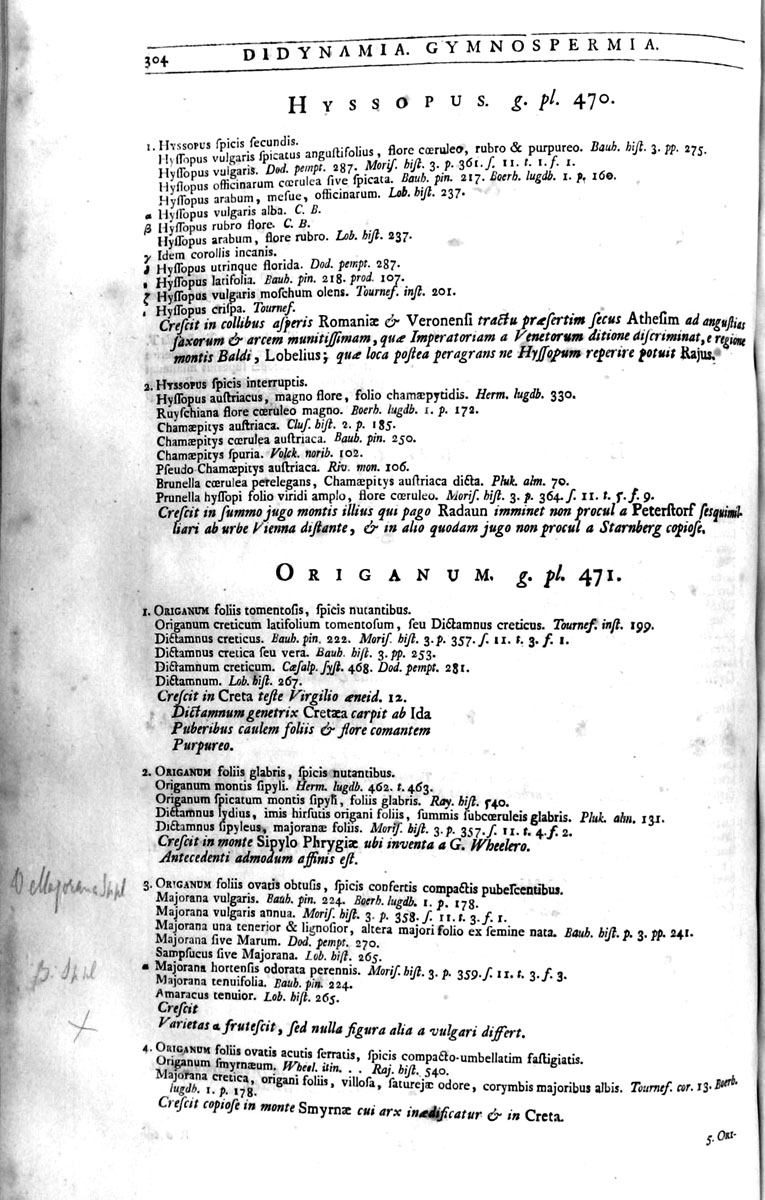 304 DIDYNAMIA. GYMNOSPERMIA.
HYSSOPUS. g. pl. 470.
1. HYSSOPUS ſpicis ſecundis.
Hyſſopus vulgaris ſpicatus anguſtifolius, flore cœruleo, rubro & purpureo. Bauh. hiſt. 3. pp. 275.
Hyſſopus vulgaris. Dod. pempt. 287. Moriſ. hiſt. 3. p. 361. ſ. 11. t. 1. f. 1.
Hyſſopus officinarum cœrulea ſive ſpicata. Bauh. pin. 217. Boerh. lugdb. 1. p. 160.
Hyſſopus arabum, meſue, officinarum. Lob. hiſt. 237.
α Hyſſopus vulgaris alba. C. B.
β Hyſſopus rubro flore. C. B.
Hyſſopus arabum, flore rubro. Lob. hiſt. 237.
γ Idem corollis incanis.
δ Hyſſopus utrinque florida. Dod. pempt. 287.
ε Hyſſopus latifolia. Bauh. pin. 218. prod. 107.
ζ Hyſſopus vulgaris moſchum olens. Tournef. inſt. 201.
Hyſſopus criſpa. Tournef.
Creſcit in collibus aſperis Romaniæ & Veronenſi tractu præſertim ſecus Atheſim ad anguſtias
ſaxorum & arcem munitiſſimam, quæ Imperatoriam a Venetorum ditione diſcriminat, e regione
montis Baldi, Lobelius; quæ loca poſtea peragrans ne Hyſſopum reperire potuit Rajus.
2. HYSSOPUS ſpicis interruptis.
Hyſſopus auſtriacus, magno flore, folio chamæpytidis. Herm. lugdb. 330.
Ruyſchiana flore cœruleo magno. Boerh. lugdb. 1. p. 172.
Chamæpitys auſtriaca. Cluſ. hiſt. 2. p. 185.
Chamæpitys cœrulea auſtriaca. Bauh. pin. 250.
Chamæpitys ſpuria. Volck. norib. 102.
Pſeudo Chamæpitys auſtriaca. Riv. mon. 106.
Brunella cœrulea perelegans, Chamæpitys auſtriaca dicta. Pluk. alm. 70.
Prunella hyſſopi folio viridi amplo, flore cœruleo. Moriſ. hiſt. 3. p. 364. ſ. 11. t. 5. f. 9.
Creſcit in ſummo jugo montis illius qui pago Radaun imminet non procul a Peterſtorf ſesquimil-
liari ab urbe Vienna diſtante, & in alio quodam jugo non procul a Starnberg copioſe.
ORIGANUM. g. pl. 471.
1. ORIGANUM foliis tomentoſis, ſpicis nutantibus.
Origanum creticum latifolium tomentoſum, ſeu Dictamnus creticus. Tournef. inſt. 199.
Dictamnus creticus. Bauh. pin. 222. Moriſ. hiſt. 3. p. 357. ſ. 11. t. 3. f. 1.
Dictamnus cretica ſeu vera. Bauh. hiſt. 3. pp. 253.
Dictamnum creticum. Cæſalp. ſyſt. 468. Dod. pempt. 281.
Dictamnum. Lob. hiſt. 267.
Creſcit in Creta teſte Virgilio æneid. 12.
Dictamnum genetrix Cretæa carpit ab Ida
Puberibus caulem foliis & flore comantem
Purpureo.
2. ORIGANUM foliis glabris, ſpicis nutantibus.
Origanum montis ſipyli. Herm. lugdb. 462. t. 463.
Origanum ſpicatum montis ſipyli, foliis glabris. Ray. hiſt. 540.
Dictamnus lydius, imis hirſutis origani foliis, ſummis ſubcœruleis glabris. Pluk. alm. 131.
Dictamnus ſipyleus, majoranæ foliis. Moriſ. hiſt. 3. p. 357. ſ. 11. t. 4. f. 2.
Creſcit in monte Sipylo Phrygiæ ubi inventa a G. Wheelero.
Antecedenti admodum affinis eſt.
3. ORIGANUM foliis ovatis obtuſis, ſpicis confertis compactis pubeſcentibus.
Majorana vulgaris. Bauh. pin. 224. Boerh. lugdb. 1. p. 178.
Majorana vulgaris annua. Moriſ. hiſt. 3. p. 358. ſ. 11. t. 3. f. 1.
Majorana una tenerior & lignoſior, altera majori folio ex ſemine nata. Bauh. hiſt. p. 3. pp. 241.
Majorana ſive Marum. Dod. pempt. 270.
Sampſucus ſive Majorana. Lob. hiſt. 265.
α Majorana hortenſis odorata perennis. Moriſ. hiſt. 3. p. 359. ſ. 11. t. 3. f. 3.
Majorana tenuifolia. Bauh. pin. 224.
Amaracus tenuior. Lob. hiſt. 265.
Creſcit
Varietas α fruteſcit, ſed nulla figura alia a vulgari differt.
Majorana Sp. pl
β. Sp. pl
X
4. ORIGANUM foliis ovatis acutis ſerratis, ſpicis compacto-umbellatim faſtigiatis.
Origanum ſmyrnæum. Wheel. itin. . . Raj. hiſt. 540.
Majorana cretica, origani foliis, villoſa, ſaturejæ odore, corymbis majoribus albis. Tournef. cor. 13. Boerh.
lugdb. 1. p. 178.
Creſcit copioſe in monte Smyrnæ cui arx inædificatur & in Creta.
5. ORI-